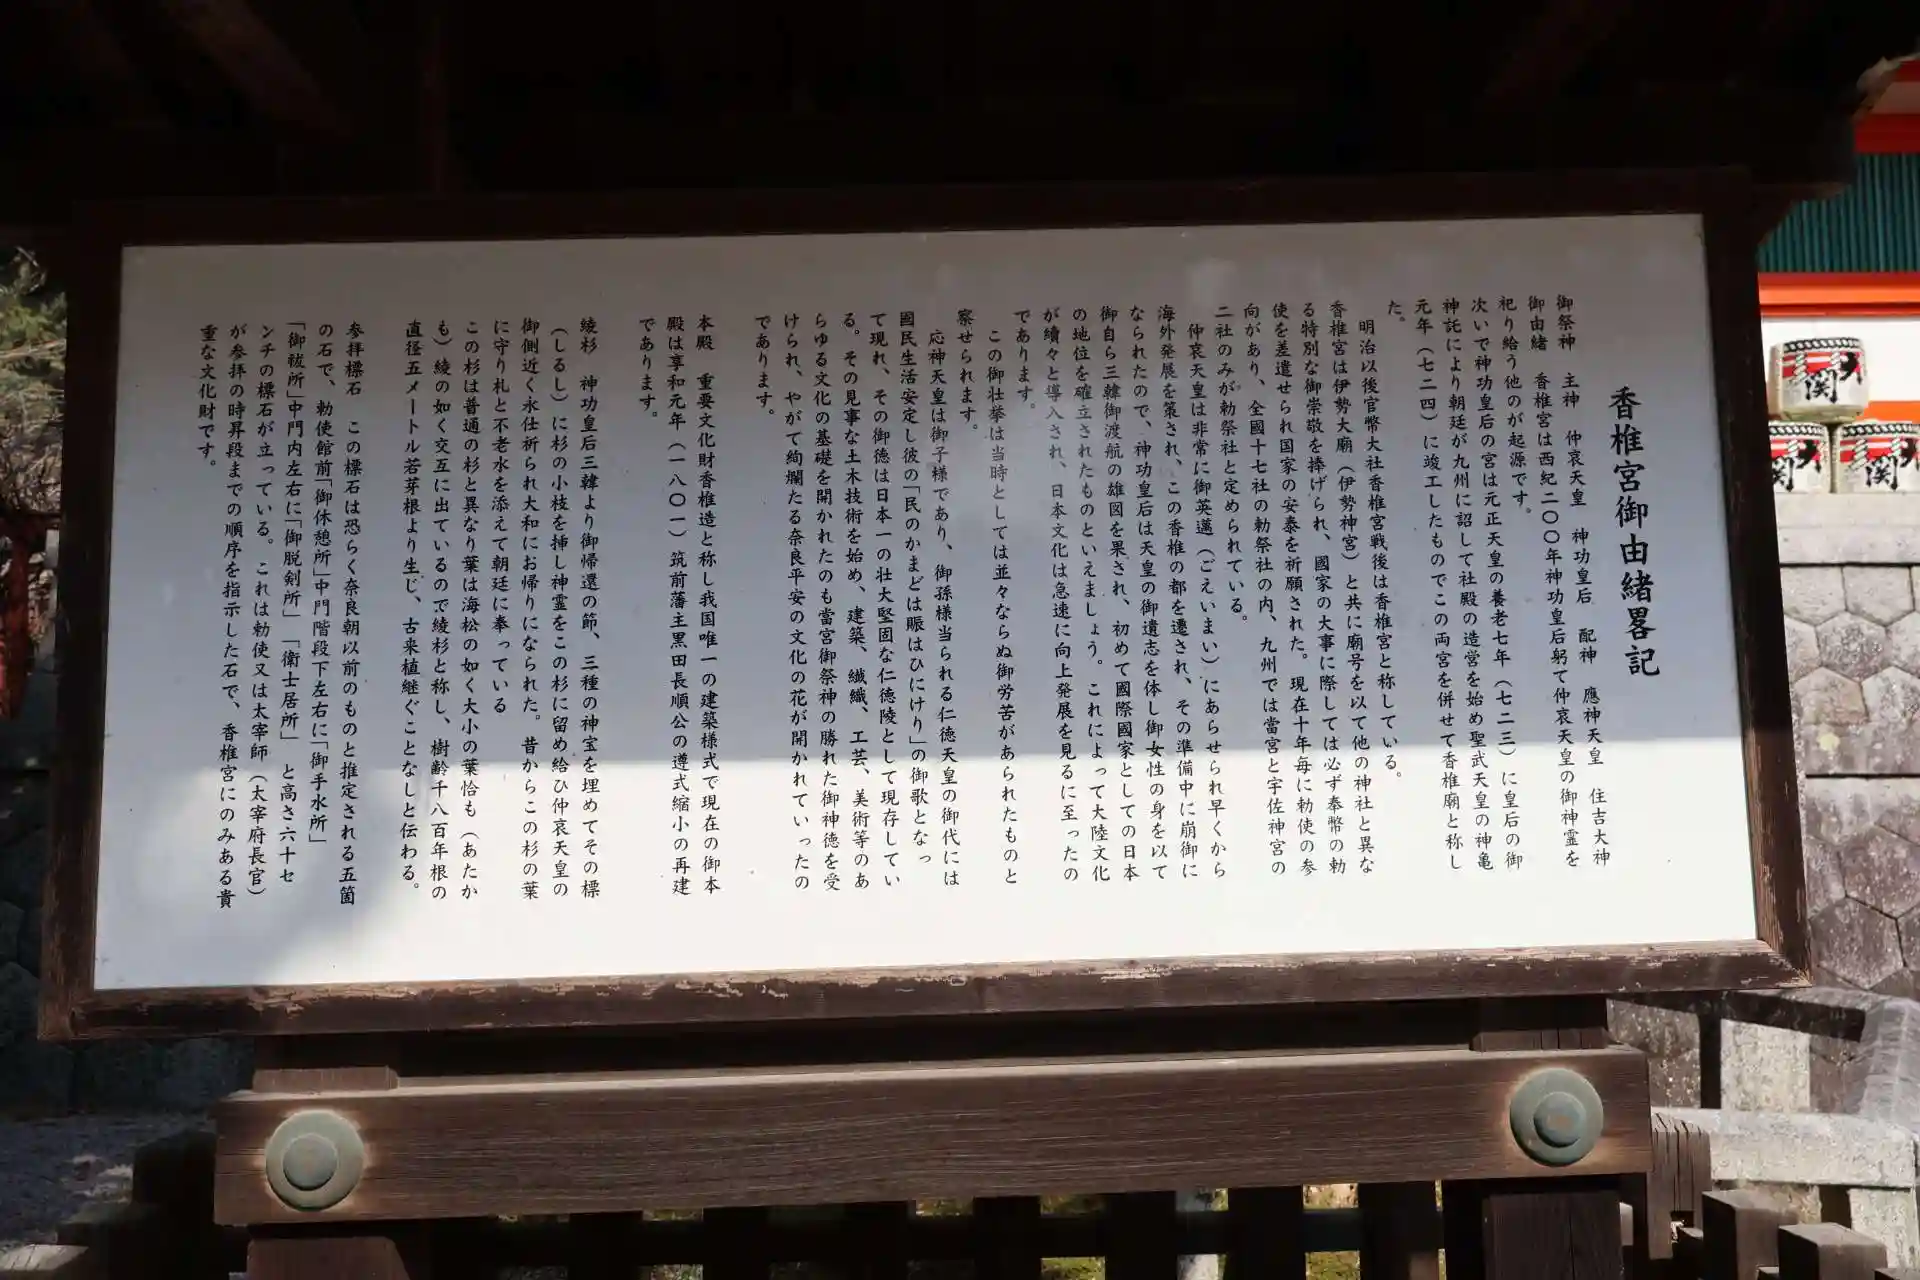 香椎宮御由緒畧記
御祭神　主神　仲哀天皇　神功皇后　配神　應神天皇　住吉大神
御由緒　香椎宮は西紀二〇〇年神功皇后躬て仲哀天皇の御神霊を
祀り給う他のが起源です。
次いで神功皇后の宮は元正天皇の養老七年（七二三）に皇后の御
神託により朝廷が九州に詔して社殿の造営を始め聖武天皇の神亀
元年（七二四）に竣工したものでこの両宮を併せて香椎廟と称し
た。
明治以後官幣大社香椎宮戦後は香椎宮と称している。
香椎宮は伊勢大廟（伊勢神宮）と共に廟号を以て他の神社と異な
る特別な御崇敬を捧げられ、國家の大事に際しては必ず奉幣の勅
使を差遣せられ国家の安泰を祈願された。現在十年毎に勅使の参
向があり、全國十七社の勅祭社の内、九州では當宮と宇佐神宮の
二社のみが勅祭社と定められている。
仲哀天皇は非常に御英邁（ごえいまい）にあらせられ早くから
海外発展を策され、この香椎の都を遷され、その準備中に崩御に
なられたので、神功皇后は天皇の御遺志を体し御女性の身を以て
御自ら三韓御渡航の雄図を果され、初めて國際國家としての日本
の地位を確立されたものといえましょう。これによって大陸文化
が續々と導入され、日本文化は急速に向上発展を見るに至ったの
であります。
この御壮挙は当時としては並々ならぬ御労苦があられたものと
察せられます。
応神天皇は御子様であり、御孫様当られる仁徳天皇の御代には
國民生活安定し彼の「民のかまどは賑はひにけり」の御歌となっ
て現れ、その御徳は日本一の壮大堅固な仁徳陵として現存してい
る。その見事な土木技術を始め、建築、繊織、工芸、美術等のあ
らゆる文化の基礎を開かれたのも當宮御祭神の勝れた御神徳を受
けられ、やがて絢爛たる奈良平安の文化の花が開かれていったの
であります。
本殿　重要文化財香椎造と称し我国唯一の建築様式で現在の御本
殿は享和元年（一八〇一）筑前藩主黒田長順公の遵式縮小の再建
であります。
綾杉　神功皇后三韓より御帰還の節、三種の神宝を埋めてその標
（しるし）に杉の小枝を挿し神霊をこの杉に留め給ひ仲哀天皇の
御側近く永仕祈られ大和にお帰りになられた。昔からこの杉の葉
に守り札と不老水を添えて朝廷に奉っている
この杉は普通の杉と異なり葉は海松の如く大小の葉恰も（あたか
も）綾の如く交互に出ているので綾杉と称し、樹齢千八百年根の
直径五メートル若芽根より生じ、古来植継ぐことなしと伝わる。
参拝標石　この標石は恐らく奈良朝以前のものと推定される五箇
の石で、勅使館前「御休憩所」中門階段下左右に「御手水所」
「御祓所」中門内左右に「御脱剣所」「衛士居所」と高さ六十セ
ンチの標石が立っている。これは勅使又は太宰師（太宰府長官）
が参拝の時昇段までの順序を指示した石で、香椎宮にのみある貴
重な文化財です。
大関
大関
大関